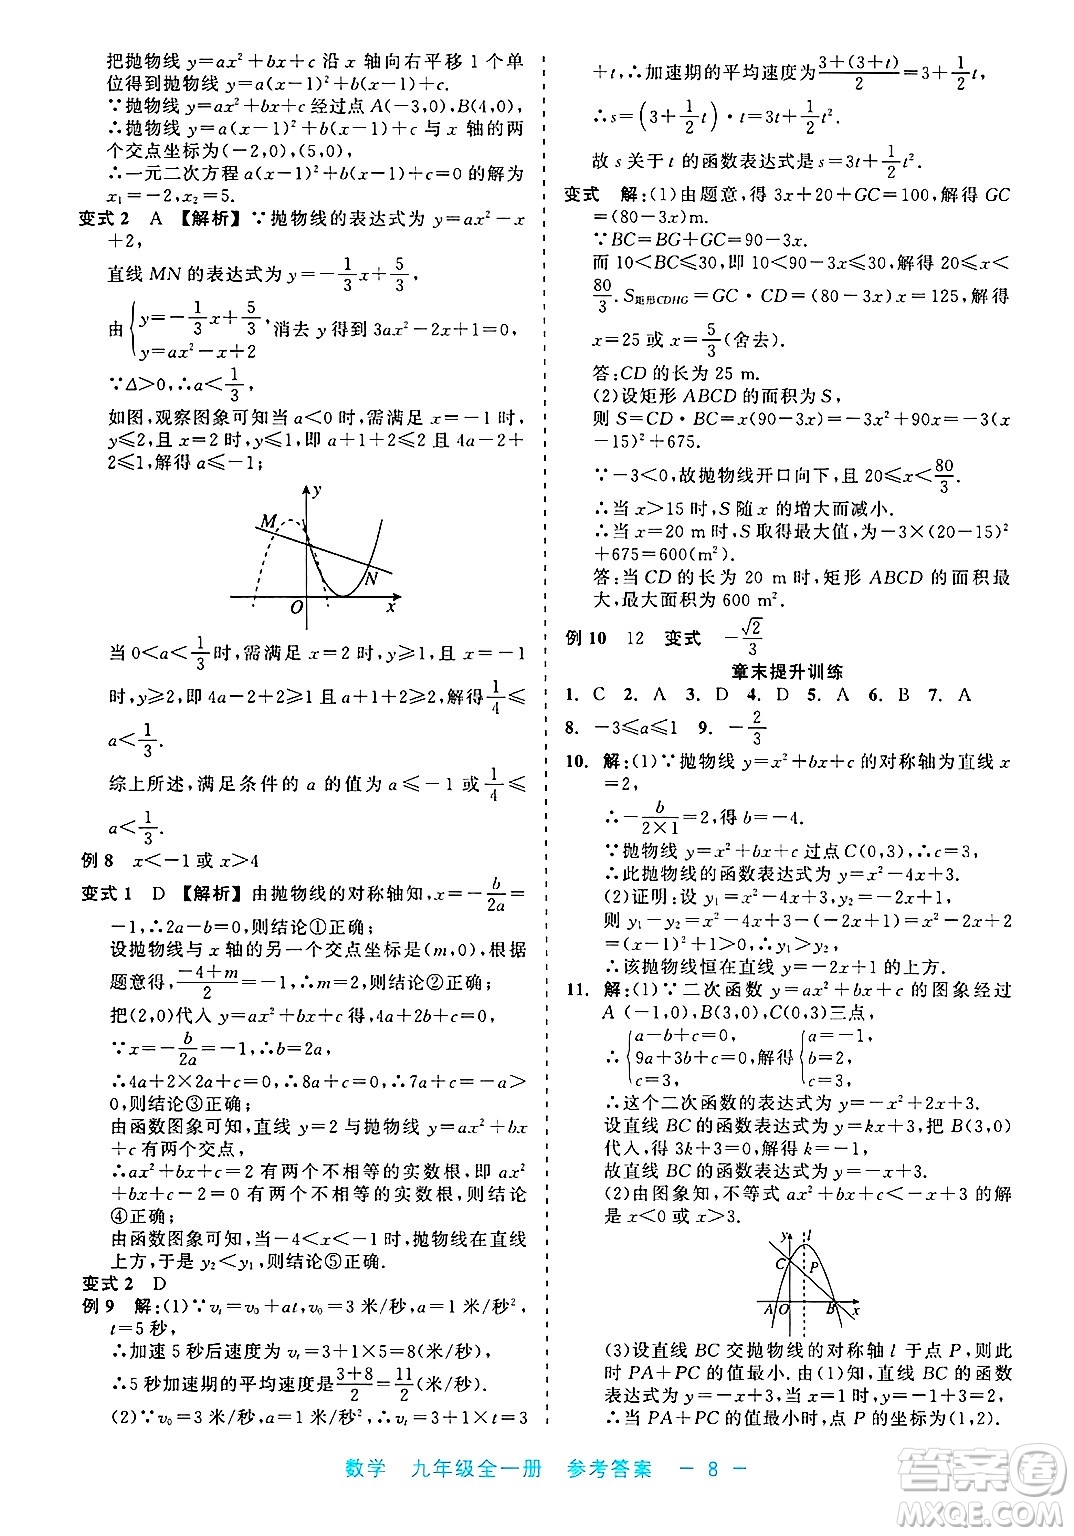 把抛物线 y=ax²+bx+c 沿 x 轴向右平移 1 个单
位得到抛物线 y=a(x-1)²+b(x-1)+c.
∵抛物线 y=ax²+bx+c 经过点 A(-3,0),B(4,0),
∴抛物线 y=a(x-1)²+b(x-1)+c 与 x 轴的两
个交点坐标为(-2,0),(5,0),
∴一元二次方程 a(x-1)²+b(x-1)+c 的解为
x₁=-2,x₂=5.
变式 2 A 【解析】∵抛物线的表达式为 y=ax²-x
+2,
直线 MN 的表达式为 y=-1/3x+5/3,
由{y=-1/3x+5/3, y=ax²-x+2 消去 y 得到 3ax²-2x+1=0,
∵Δ>0,∴a<1/3,
如图,观察图象可知当 a<0 时,需满足 x=-1 时,
y≤2,且 x=2 时,y≤1,即 a+1+2≤2 且 4a-2+
2≤1,解得 a≤-1;
y
M
N
O
x
当 0<a<1/3 时,需满足 x=2 时,y≥1,且 x=-1
时,y≥2,即 4a-2+2≥1 且 a+1+2≥2,解得 1/4≤
a<1/3.
综上所述,满足条件的 a 的值为 a≤-1 或 1/4≤
a<1/3.
例 8 x<-1 或 x>4
变式 1 D 【解析】由抛物线的对称轴知,x=-b/2a=
-1,∴2a-b=0,则结论①正确;
设抛物线与 x 轴的另一个交点坐标是(m,0),根据
题意得,(-4+m)/2=-1,∴m=2,则结论②正确;
把(2,0)代入 y=ax²+bx+c 得,4a+2b+c=0,
∵x=-b/2a=-1,∴b=2a,
∴4a+2×2a+c=0,∴8a+c=0,∴c=-8a>
0,则结论③正确;
由函数图象可知,直线 y=2 与抛物线 y=ax²+bx
+c 有两个交点,
∴ax²+bx+c=2 有两个不相等的实数根,即 ax²
+bx+c-2=0 有两个不相等的实数根,则结论
④正确;
由函数图象可知,当-4<x<-1 时,抛物线在直线
上方,于是 y₂<y₁,则结论⑤正确.
变式 2 D
例 9 解:(1)∵vₜ=v₀+at,v₀=3 米/秒,a=1 米/秒²,
t=5 秒,
∴加速 5 秒后速度为 vₜ=3+1×5=8(米/秒),
∴5 秒加速期的平均速度是(3+8)/2=11/2(米/秒).
(2)∵v₀=3 米/秒,a=1 米/秒²,∴vₜ=v₀+at=3
+t,∴加速期的平均速度为(3+(3+t))/2=3+1/2t,
∴s=(3+1/2t)·t=3t+1/2t².
故 s 关于 t 的函数表达式是 s=3t+1/2t².
变式 解:(1)由题意,得 3x+20+GC=100,解得 GC
=(80-3x)m.
∵BC=BG+GC=90-3x.
而 10<BC≤30,即 10<90-3x≤30,解得 20≤x<
80/3.S矩形CDHG=GC·CD=(80-3x)x=125,解得
x=25 或 x=5/3(舍去).
答:CD 的长为 25 m.
(2)设矩形 ABCD 的面积为 S,
则 S=CD·BC=x(90-3x)=-3x²+90x=-3(x
-15)²+675.
∵-3<0,故抛物线开口向下,且 20≤x<80/3.
∴当 x>15 时,S 随 x 的增大而减小.
∴当 x=20 m 时,S 取得最大值,为-3×(20-15)²
+675=600(m²).
答:当 CD 的长为 20 m 时,矩形 ABCD 的面积最
大,最大面积为 600 m².
例 10 12 变式 -√2/3
章末提升训练
1. C 2. A 3. D 4. D 5. A 6. B 7. A
8. -3≤a≤1 9. -2/3
10. 解:(1)∵抛物线 y=x²+bx+c 的对称轴为直线 x
=2,
∴-b/(2×1)=2,得 b=-4.
∵抛物线 y=x²+bx+c 过点 C(0,3),∴c=3.
∴此抛物线的函数表达式为 y=x²-4x+3.
(2)证明:设 y₁=x²-4x+3,y₂=-2x+1,
则 y₁-y₂=x²-4x+3-(-2x+1)=x²-2x+2
=(x-1)²+1>0,∴y₁>y₂,
∴该抛物线恒在直线 y=-2x+1 的上方.
11. 解:(1)∵二次函数 y=ax²+bx+c 的图象经过
A (-1,0),B(3,0),C(0,3)三点,
∴{a-b+c=0, 9a+3b+c=0, c=3, 解得{a=-1, b=2, c=3,
∴这个二次函数的表达式为 y=-x²+2x+3.
设直线 BC 的函数表达式为 y=kx+3,把 B(3,0)
代入,得 3k+3=0,解得 k=-1,
故直线 BC 的函数表达式为 y=-x+3.
(2)由图象知,不等式 ax²+bx+c<-x+3 的解
是 x<0 或 x>3.
y
l
C
P
A
O
B
x
(3)设直线 BC 交抛物线的对称轴 l 于点 P,则此
时 PA+PC 的值最小.由(1)知,直线 BC 的函数
表达式为 y=-x+3,当 x=1 时,y=-1+3=2,
∴当 PA+PC 的值最小时,点 P 的坐标为(1,2).
数学 九年级全一册 参考答案 — 8 —
答案圈
MXQE.COM